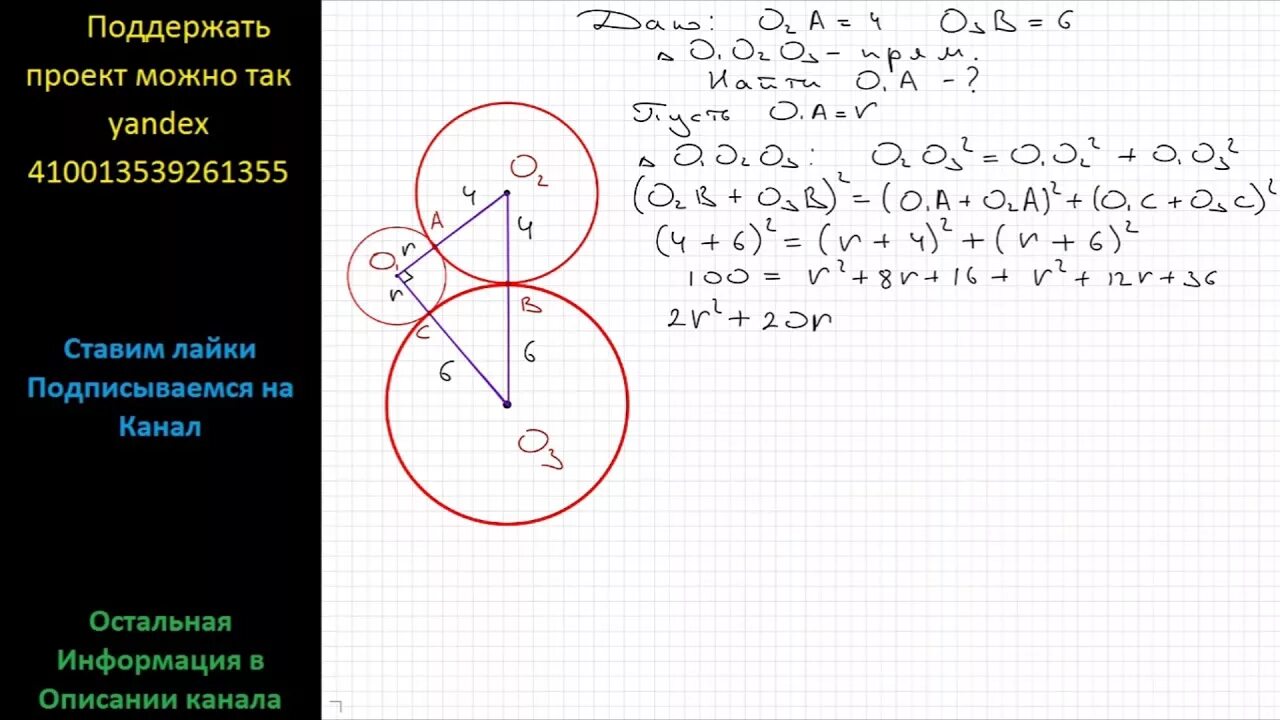 Поддержать
проект можно так
yandex
410013539261355
Ставим лайки
Подписываемся на
Канал
Остальная
Информация в
Описании канала
Дано: O₂A = 4 O₃B = 6
△ O₁O₂O₃ – прям.
Найти O₁A – ?
Пусть O₁A = r
△ O₁O₂O₃: O₂O₃² = O₁O₂² + O₁O₃²
(O₂B + O₃B)² = (O₁A + O₂A)² + (O₁C + O₃C)²
(4 + 6)² = (r + 4)² + (r + 6)²
100 = r² + 8r + 16 + r² + 12r + 36
2r² + 20r
O₂
4
A
4
r
O₁
r
B
C
6
6
O₃